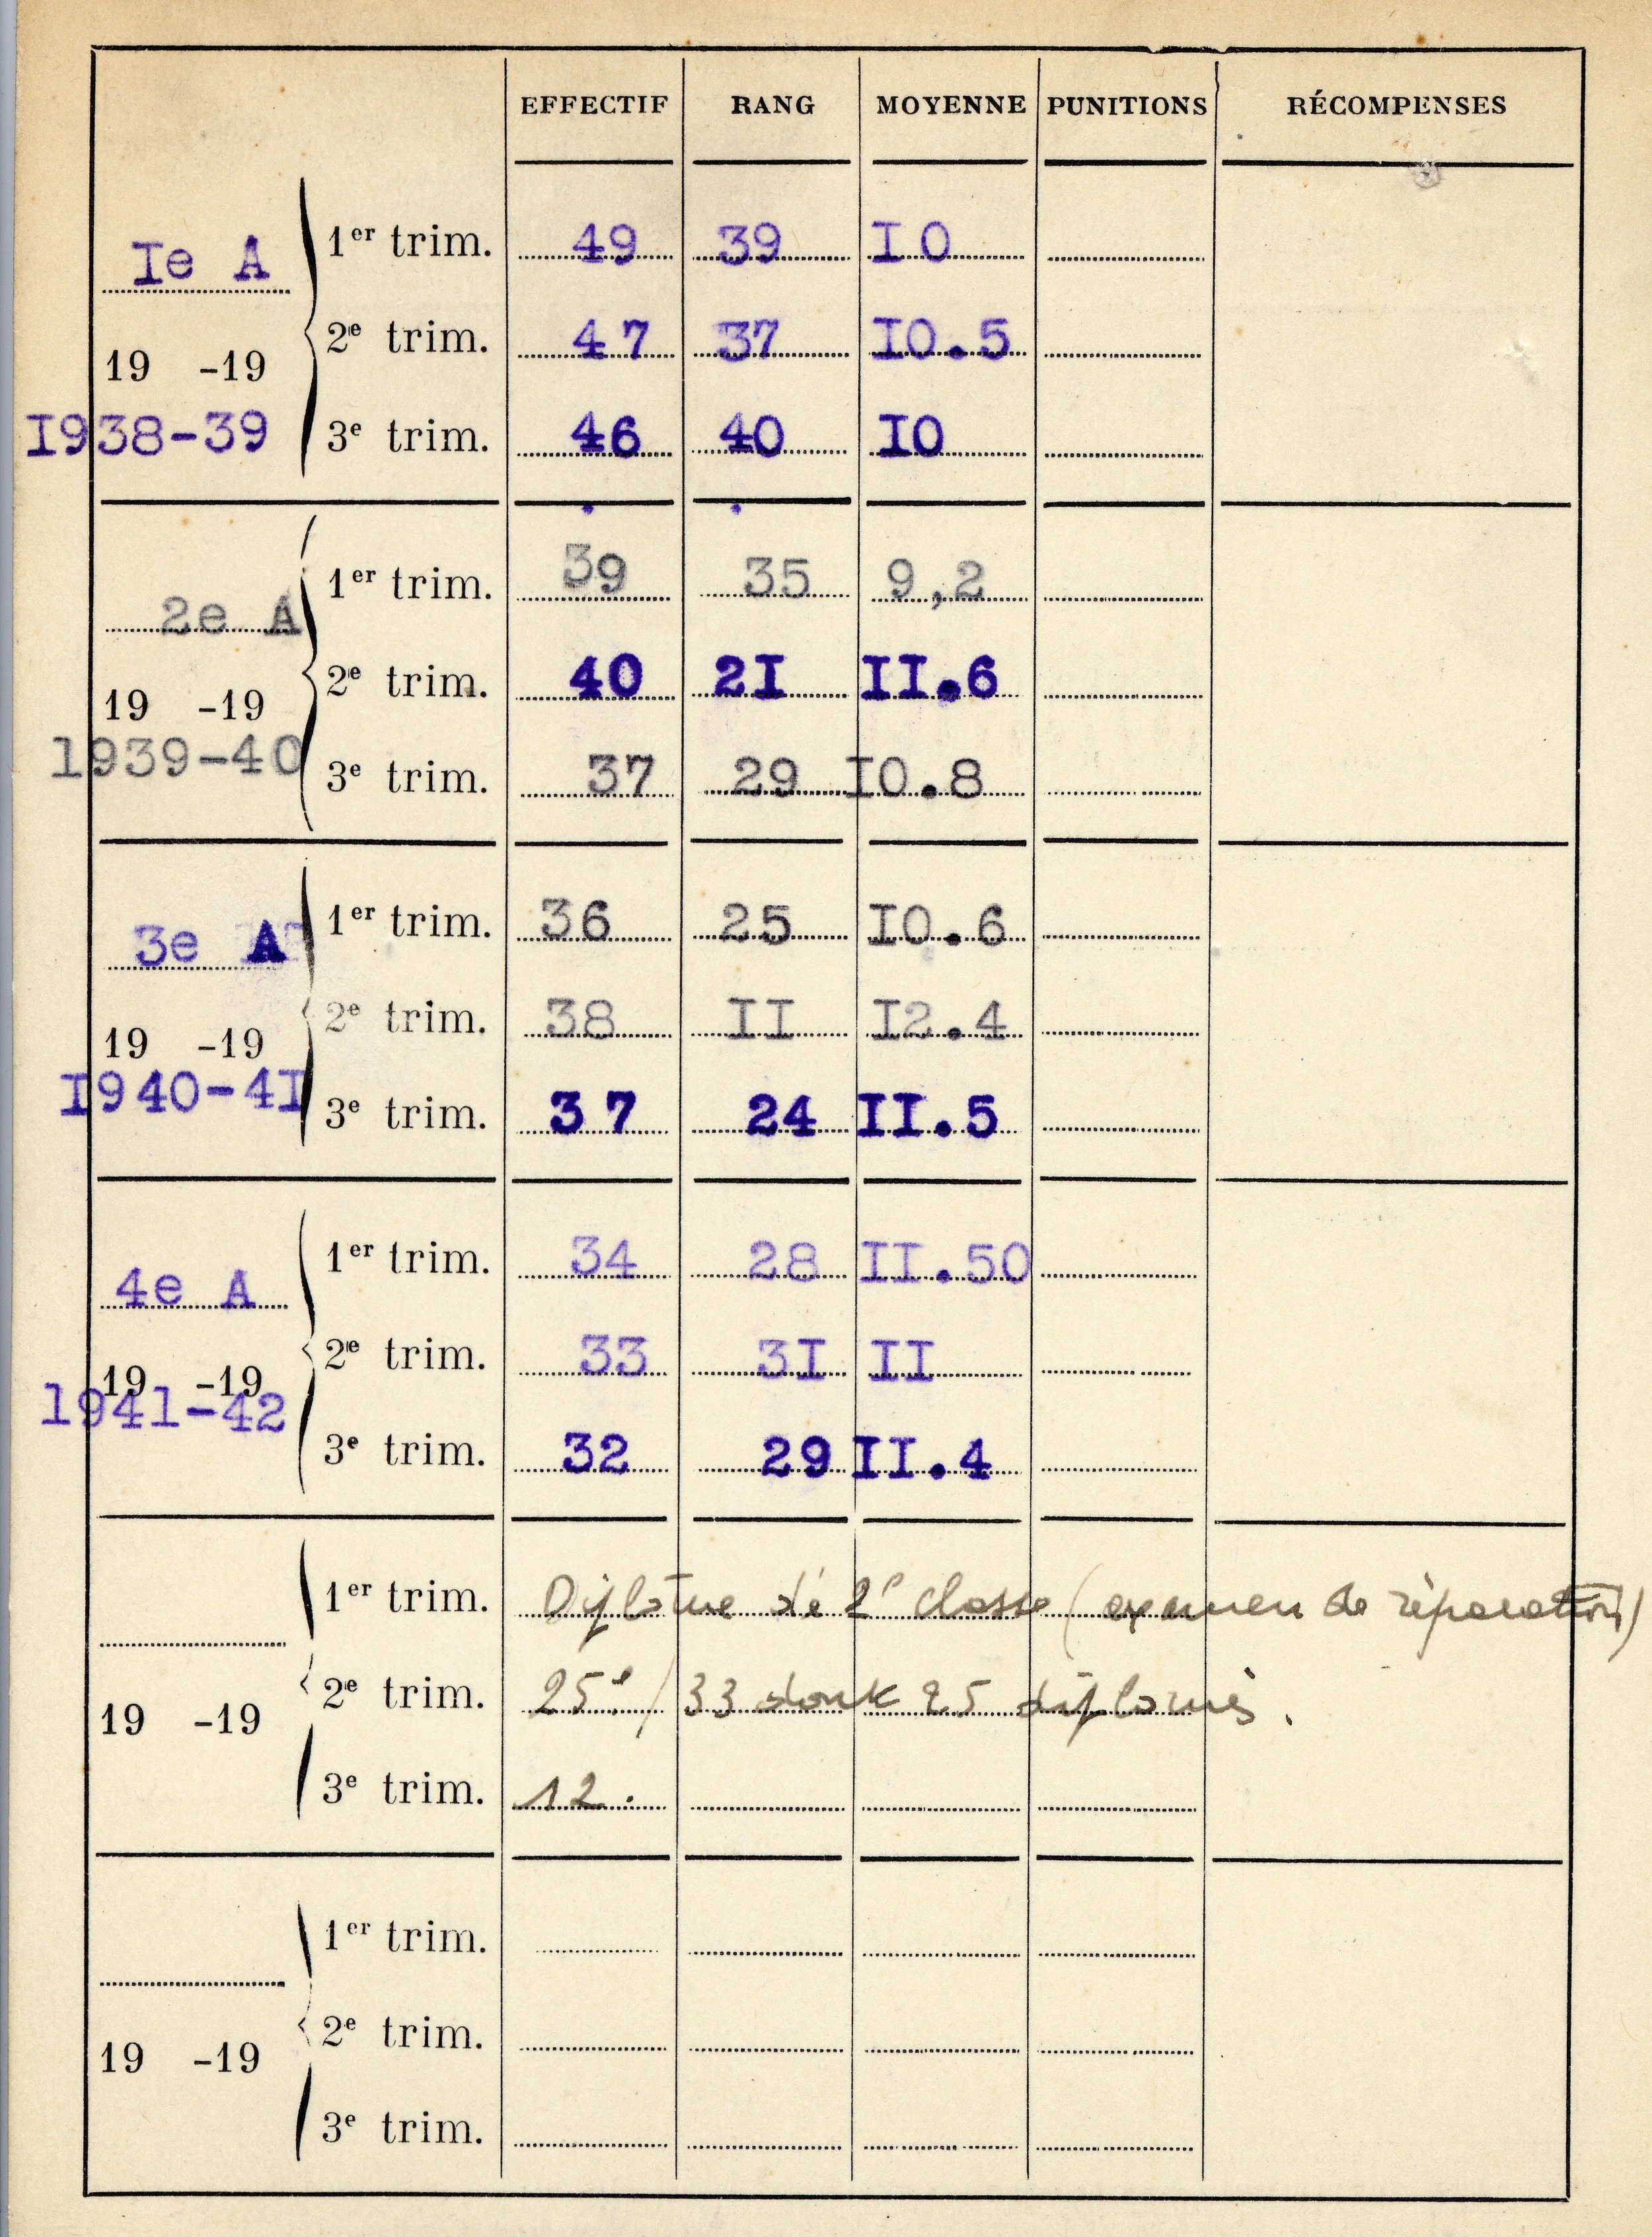 EFFECTIF RANG MOYENNE PUNITIONS RÉCOMPENSES
Ie A 1er trim. 49 39 I0
19 -19 2e trim. 47 37 I0.5
I938-39 3e trim. 46 40 I0
2e A 1er trim. 39 35 9,2
19 -19 2e trim. 40 2I II.6
1939-40 3e trim. 37 29 I0.8
3e A 1er trim. 36 25 I0.6
19 -19 2e trim. 38 II I2.4
I940-4I 3e trim. 37 24 II.5
4e A 1er trim. 34 28 II.50
19 -19 2e trim. 33 3I II
1941-42 3e trim. 32 29 II.4
1er trim. Diplôme de 2e classe (examen de réparation)
19 -19 2e trim. 25e/33 dont 25 diplomés.
3e trim. 12.
1er trim.
19 -19 2e trim.
3e trim.